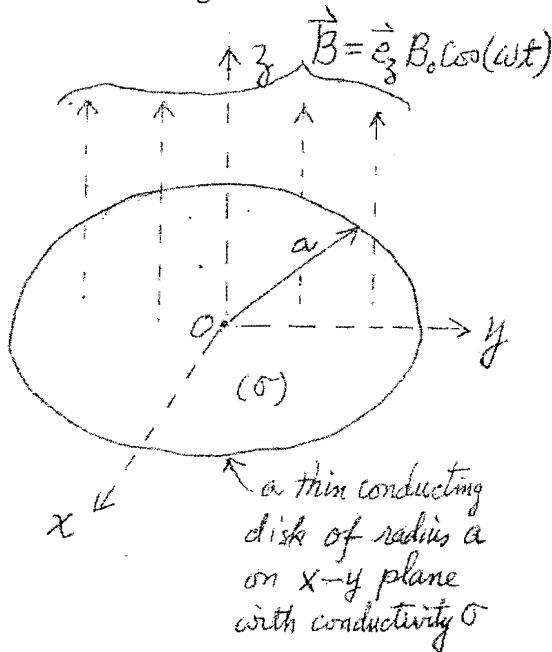 z
B⃗ = e⃗_z B₀ Cos(ωt)
a
O
y
(σ)
x
a thin conducting
disk of radius a
on x-y plane
with conductivity σ